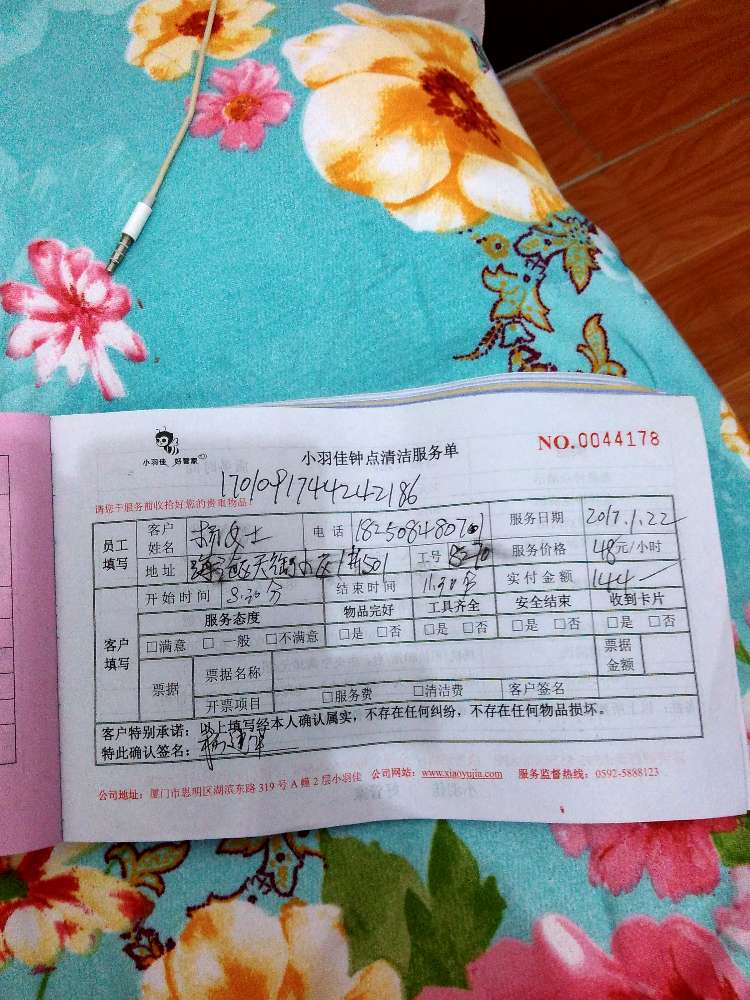 小羽佳 好管家
小羽佳钟点清洁服务单
NO.0044178
1701091744242186
请您于服务前收拾好您的贵重物品!
员工填写
客户姓名 杨女士 电话 服务日期 2017.1.22
地址 工号 服务价格 48元/小时
开始时间 8.30分 结束时间 11.30分 实付金额 144
客户填写
服务态度 物品完好 工具齐全 安全结束 收到卡片
□满意 □一般 □不满意 □是 □否 □是 □否 □是 □否 □是 □否
票据 票据名称 票据金额
开票项目 □服务费 □清洁费 客户签名
客户特别承诺:以上填写经本人确认属实,不存在任何纠纷,不存在任何物品损坏。
特此确认签名:
公司地址:厦门市思明区湖滨东路 319 号 A 幢 2 层小羽佳 公司网站:www.xiaoyujia.com 服务监督热线:0592-5888123